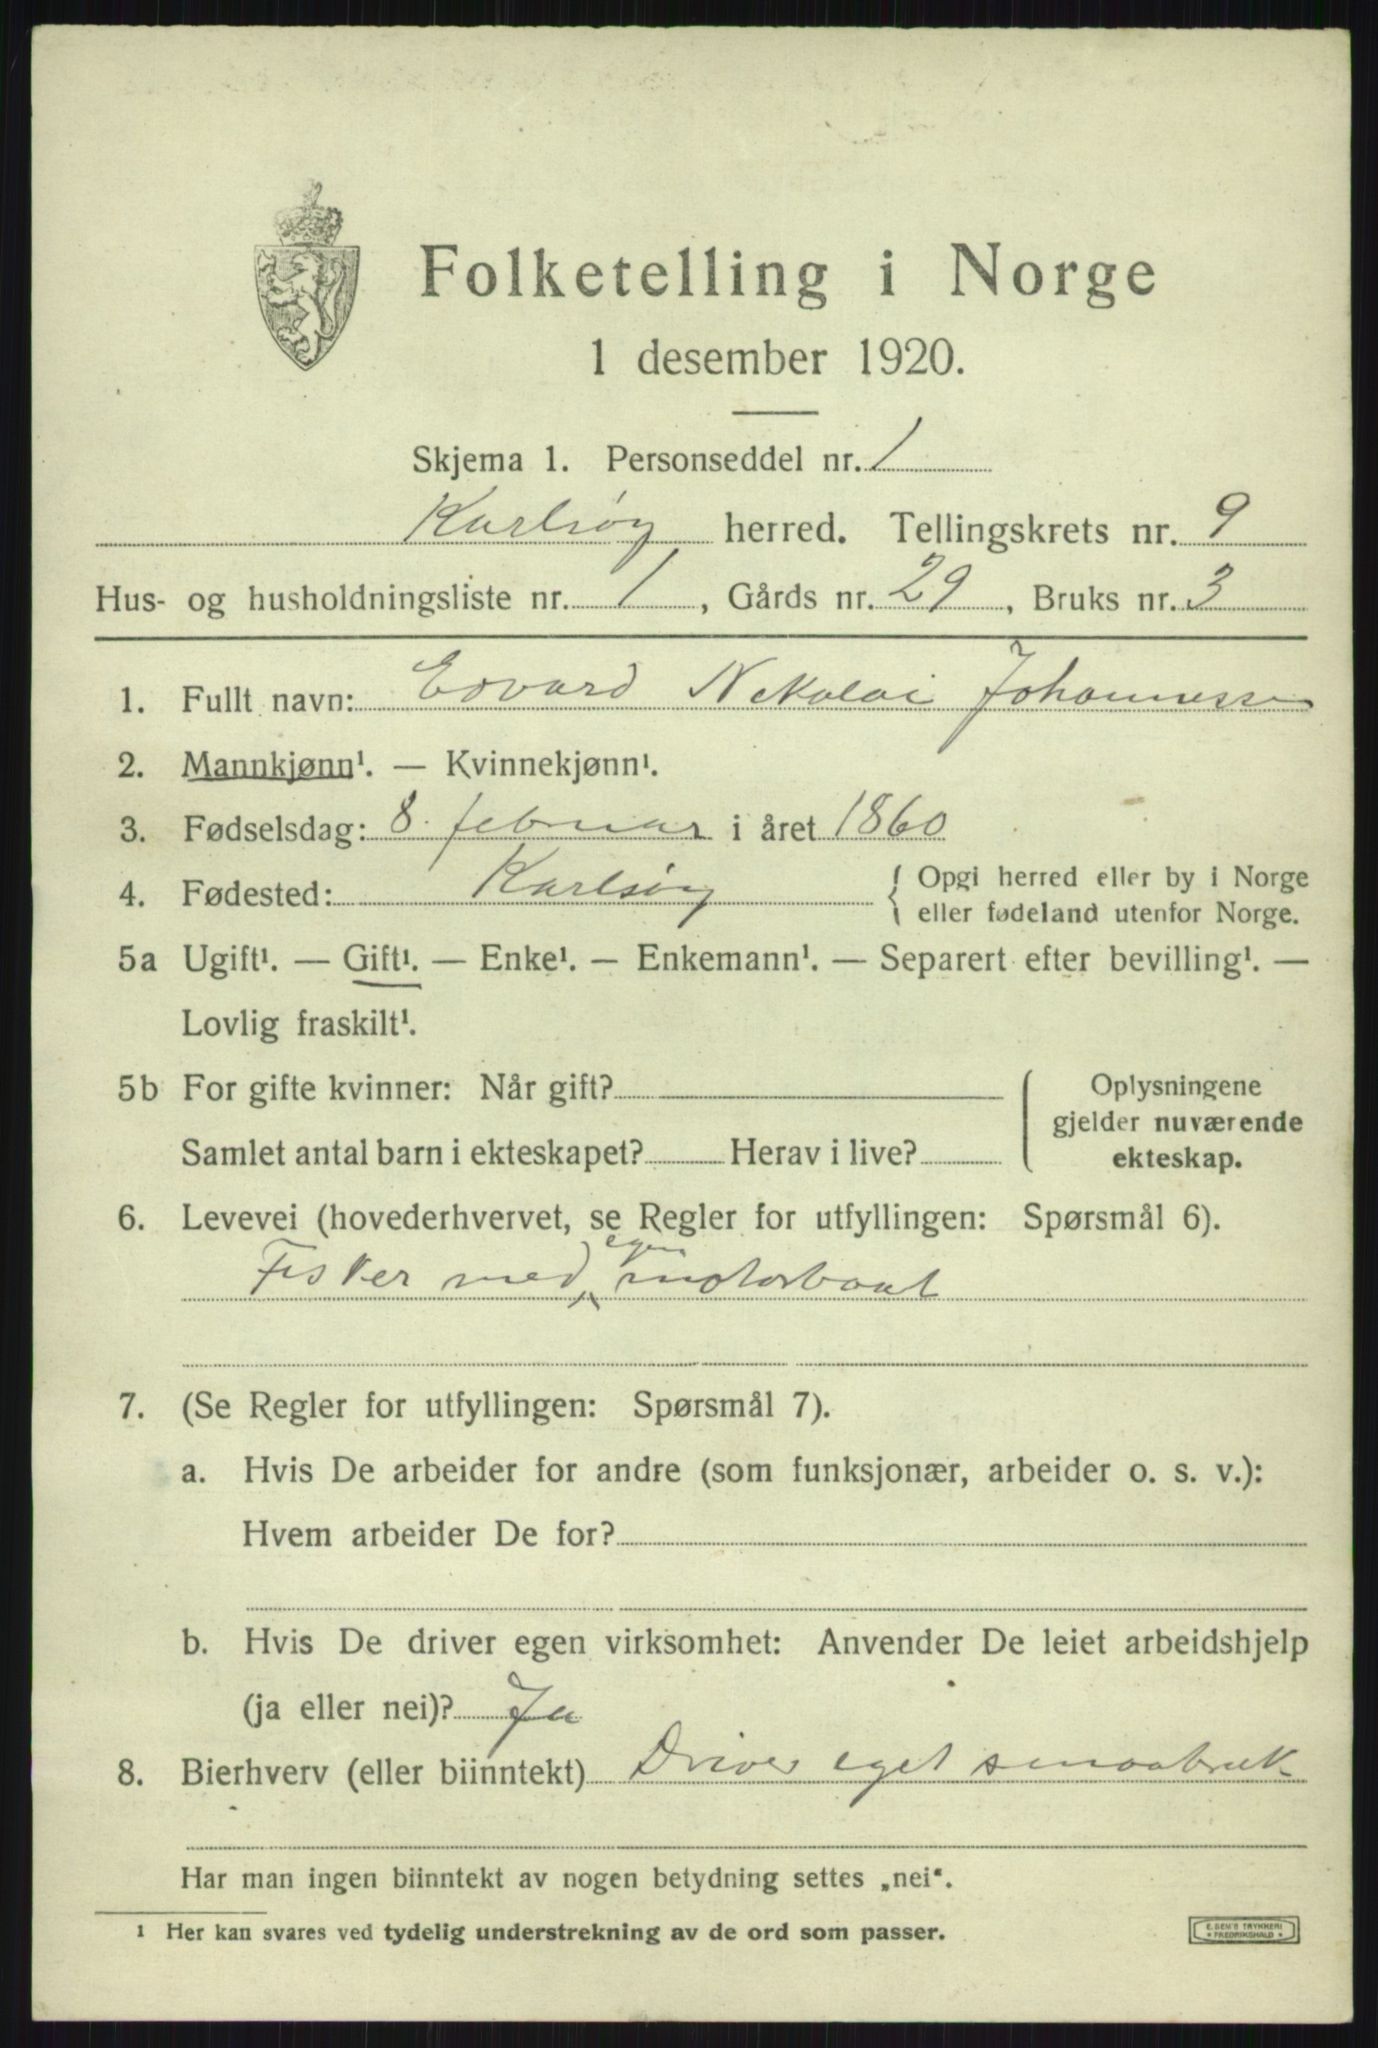 Folketelling i Norge
1 desember 1920.
Skjema 1. Personseddel nr. 1
Karlsøy herred. Tellingskrets nr. 9
Hus- og husholdningsliste nr. 1, Gårds nr. 29, Bruks nr. 3
1. Fullt navn: Edvard Nikolai Johannessen
2. Mannkjønn¹. — Kvinnekjønn¹.
3. Fødselsdag: 8. februar i året 1860
4. Fødested: Karlsöy { Opgi herred eller by i Norge
eller fødeland utenfor Norge.
5a Ugift¹. — Gift¹. — Enke¹. — Enkemann¹. — Separert efter bevilling¹. —
Lovlig fraskilt¹.
5b For gifte kvinner: Når gift? Oplysningene
gjelder nuværende
Samlet antal barn i ekteskapet? Herav i live? ekteskap.
6. Levevei (hovederhvervet, se Regler for utfyllingen: Spørsmål 6).
Fisker med egen motorbaat
7. (Se Regler for utfyllingen: Spørsmål 7).
a. Hvis De arbeider for andre (som funksjonær, arbeider o. s. v.):
Hvem arbeider De for?
b. Hvis De driver egen virksomhet: Anvender De leiet arbeidshjelp
(ja eller nei)? Ja
8. Bierhverv (eller biinntekt) Driver eget smaabruk
Har man ingen biinntekt av nogen betydning settes „nei“.
¹ Her kan svares ved tydelig understrekning av de ord som passer.
E. SEM'S TRYKKERI
* FREDRIKSHALD *